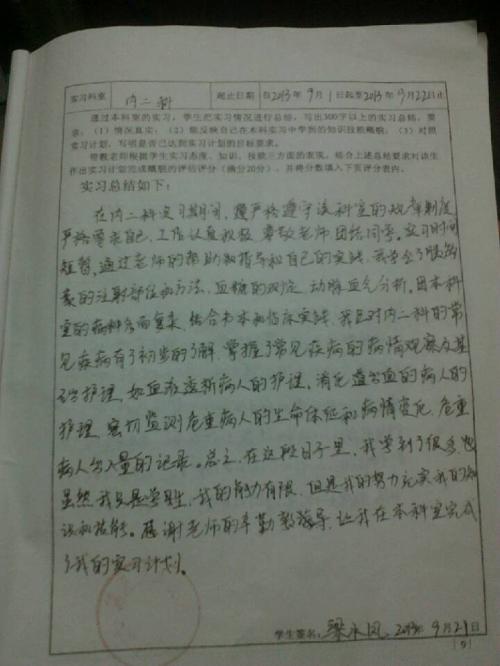 实习科室 内二科 起止日期 自2013年9月1日起至2013年9月22日止
通过本科室的实习，学生把实习情况进行总结，写出300字以上的实习总结，要
求：（1）情况真实；（2）能反映自己在本科实习中学到的知识技能概貌；（3）对照
实习计划，写明是否已达到实习计划的目标要求。
带教老师根据学生实习态度、知识、技能三方面的表现，结合上述总结要求对该生
作出实习计划完成概貌的评估评分（满分20分），并将分数填入下页评分表内。
实习总结如下：
在内二科实习期间，我严格遵守该科室的规章制度
严格要求自己，工作认真积极，尊敬老师，团结同学。实习时间
短暂，通过老师的帮助和指导和自己的实践，我学会了胰岛
素的注射部位和方法，血糖的测定，动脉血气分析。因本科
室的病种多而复杂，结合书本和临床实践，我已对内二科的常
见疾病有了初步的了解，掌握了常见疾病的病情观察及基
础护理，如血液透析病人的护理，消化道出血的病人的
护理，密切监测危重病人的生命体征和病情变化，危重
病人出入量的记录。总之，在这段日子里，我学到了很多，也
虽然我只是学生，我的能力有限，但是我的努力充实我的知
识和技能。感谢老师的辛勤教导，让我在本科室完成
了我的实习计划。
学生签名： 梁永凤 2013年9月21日
9